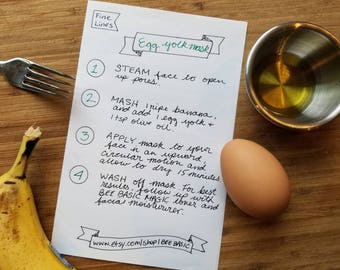 Fine
Lines
Egg yolk mask
1 STEAM face to open
up pores.
2 MASH 1 ripe banana,
and add 1 egg yolk &
1 tsp olive oil.
3 APPLY mask to your
face in an upward,
circular motion and
allow to dry 15 minutes
4 WASH off mask. For best
results follow up with
BEE BASIC MASK toner and
facial moisturizer.
www.etsy.com/shop/BEE BASIC